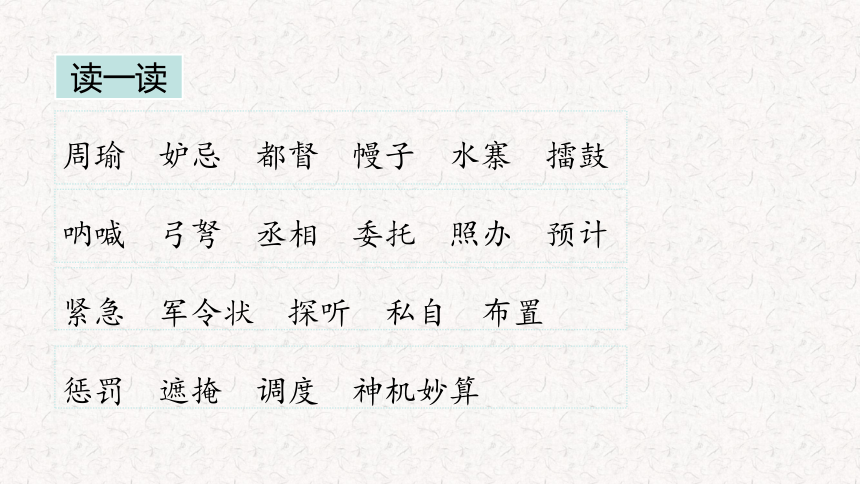 读一读
周瑜 妒忌 都督 幔子 水寨 擂鼓
呐喊 弓弩 丞相 委托 照办 预计
紧急 军令状 探听 私自 布置
惩罚 遮掩 调度 神机妙算